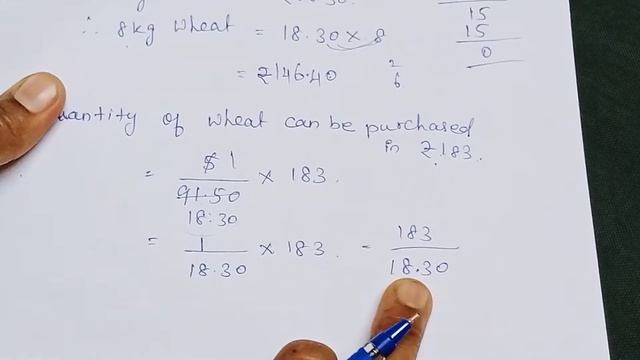 18.30.
∴ 8kg wheat = 18.30 x 8
= ₹146.40
15
15
0
2
6
uantity of wheat can be purchased
in ₹183.
= 5 1
91.50 x 183.
18.30
= 1
18.30 x 183. = 183
18.30